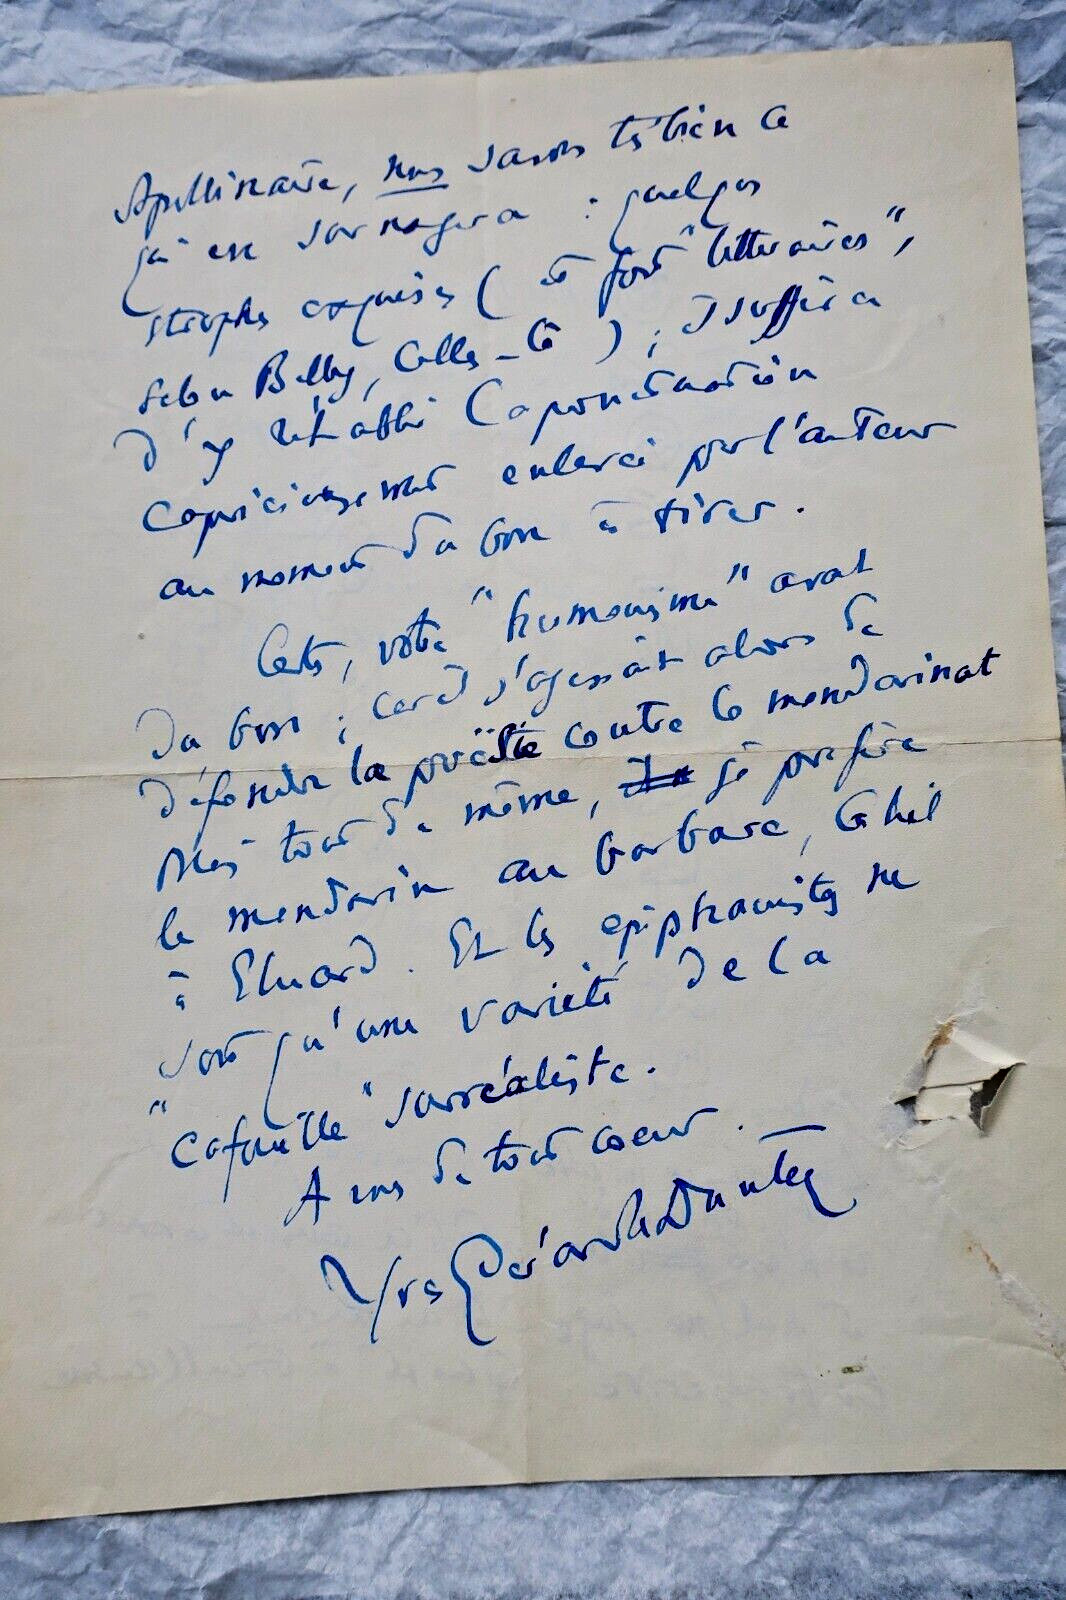 Apollinaire, nous savons très bien ce
qui en surnagera : quelques
strophes exquises (et fort "littéraires",
selon Billy, celles-là) ; il suffira
d'y rétablir la ponctuation
capricieusement enlevée par l'auteur
au moment du bon à tirer.
Certes, votre "humanisme" avait
du bon ; car il s'agissait alors de
défendre la poésie contre le mandarinat
Mais tout de même, je préfère
le mandarin au barbare, Ghil
à Eluard. Et les épiphanistes ne
sont qu'une variété de la
"cafouille" surréaliste.
A vous de tout coeur. —
Yves Gérard le Dantec